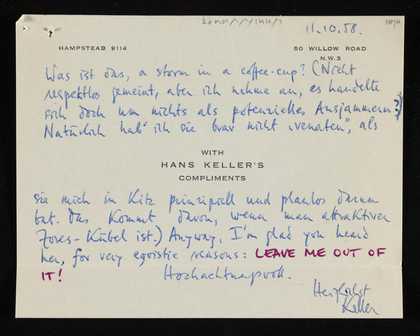 11.10.58.
HAMPSTEAD 9114
50 WILLOW ROAD
N.W.3
Was ist das, a storm in a coffee-cup? (Nicht
respektlos gemeint, aber ich nehme an, es handelte
sich doch um nichts als potenzielles Ausjammern?)
Natürlich hab' ich sie brav nicht "verraten", als
WITH
HANS KELLER'S
COMPLIMENTS
sie mich in Kitz prinzipiell und planlos darum
bat. Das kommt davon, wenn man attraktiver
Zores-Kübel ist.) Anyway, I'm glad you heard
her, for very egoistic reasons: LEAVE ME OUT OF
IT! Hochachtungsvoll.
Herzlichst
Keller